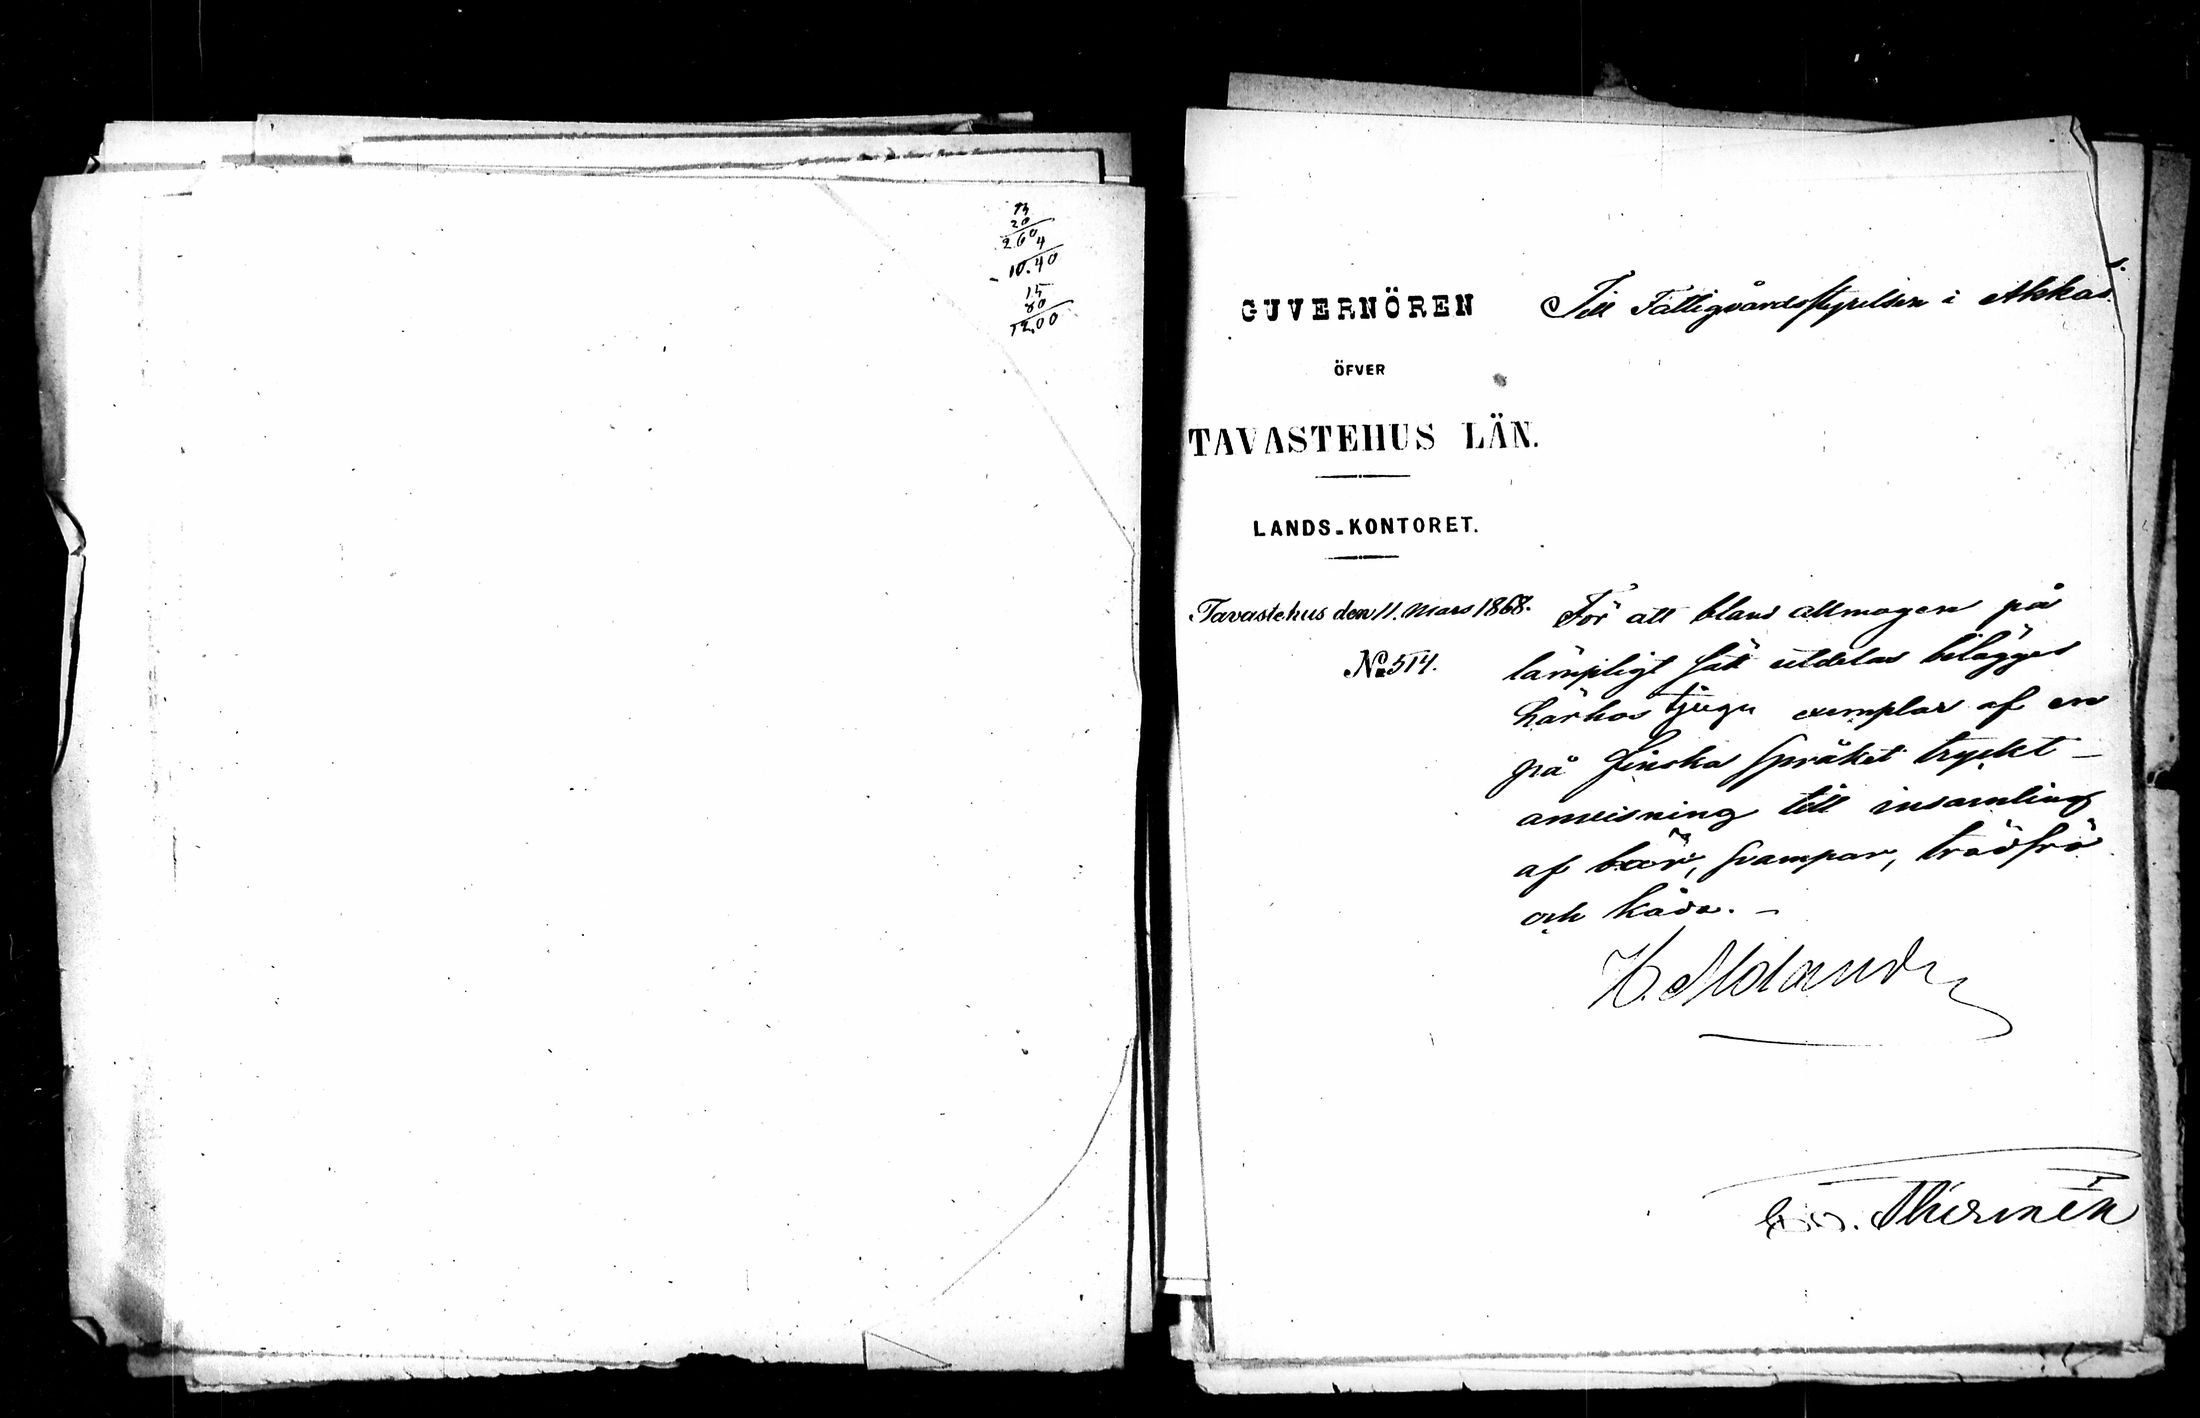 13
20
260
4
10.40
15
80
12,00
GUVERNÖREN
ÖFVER
TAVASTEHUS LÄN.
LANDS-KONTORET.
Tavastehus den 11. Mars 1868.
No 514.
Till Fattigvårdsstyrelsen i Akkas.
För att bland allmogen på
lämpligt sätt utdelas bilägges
härhos tjugu exemplar af en
på finska språket tryckt
anvisning till insamling
af bär, svampar, trädfrö
och kåda. –
H. Molander
Thermén